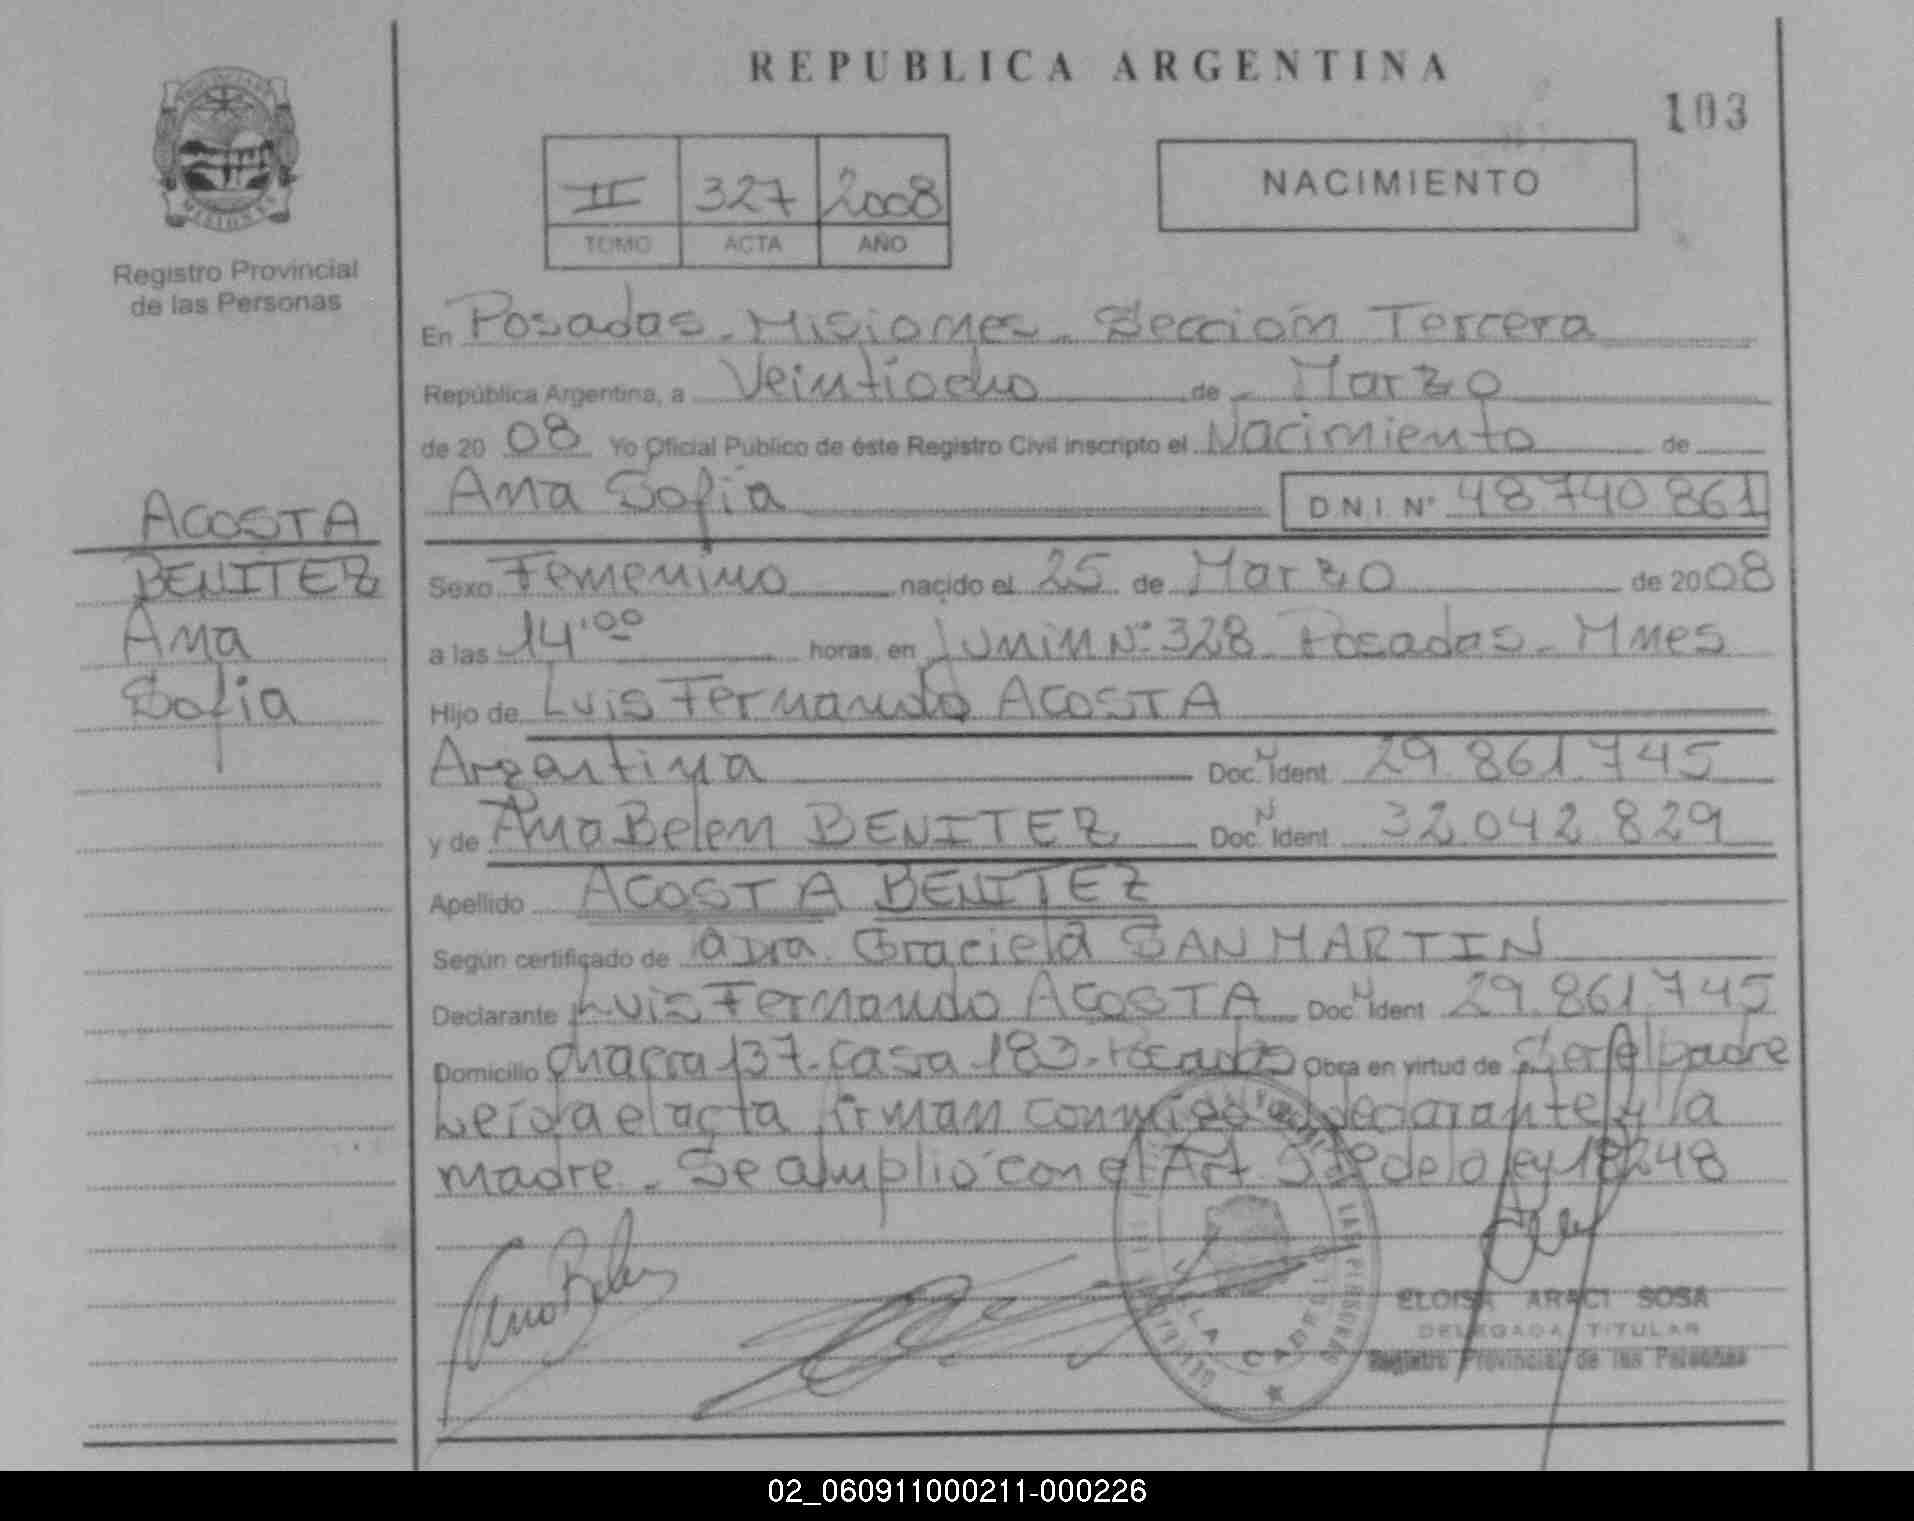 REPUBLICA ARGENTINA
103
II 327 2008
TOMO ACTA AÑO
NACIMIENTO
MISIONES
Registro Provincial
de las Personas
En Posadas - Misiones - Sección Tercera
República Argentina, a Veintiocho de Marzo
de 2008 Yo Oficial Publico de éste Registro Civil inscripto el Nacimiento de
Ana Sofia D N I N° 48740861
ACOSTA
BENITEZ
Ana
Sofia
Sexo Femenino nacido el 25 de Marzo de 2008
a las 14:00 horas, en Junin N° 328 Posadas - Mnes
Hijo de Luis Fernando ACOSTA
Argentina Doc. N Ident 29.861.745
y de Ana Belen BENITEZ Doc. N Ident 32.042.829
Apellido ACOSTA BENITEZ
Según certificado de Dra. Graciela SAN MARTIN
Declarante Luis Fernando ACOSTA Doc. N Ident 29.861.745
Domicilio chacra 137 - casa 183 - Posadas Obra en virtud de Ser el padre
Leida el acta firman conmigo el declarante y la
madre. Se amplió con el Art. de la ley 18248
Ana Belen
ELOISA ARACI SOSA
DELEGADA TITULAR
Registro Provincial de las Personas
02_060911000211-000226